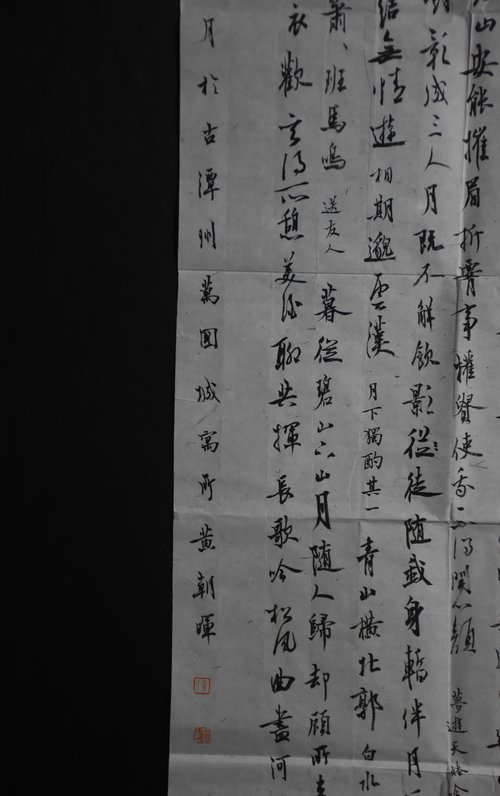 山安能摧眉折腰事權貴使我不得開心顏 夢遊天姥吟
影成三人月既不解飲影從徒隨我身暫伴月
結無情遊相期邈雲漢 月下獨酌其一 青山橫北郭 白水
蕭、班馬鳴 送友人 暮從碧山下山月随人歸却顧所
衣歡言得所憩美酒聊共揮長歌吟松風曲盡河
月於古潭州萬國城寓所黄朝暉